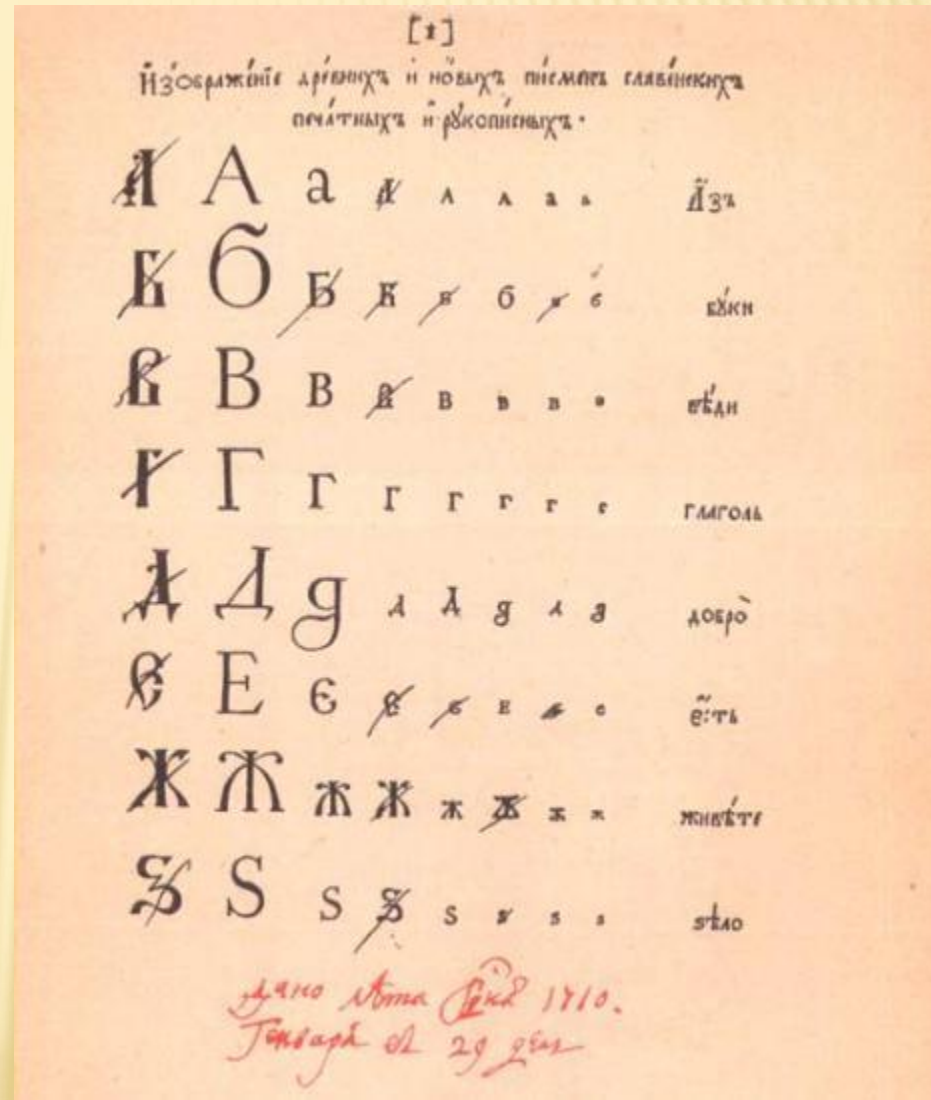 [1]
И҆зѡбраже́нїе дре́внихъ и҆ но́выхъ пи́сменъ славе́нскихъ
печа́тныхъ и҆ рꙋкопи́сныхъ.
А А а А А А а а А҆́зъ
Б Б Б Б Б б б б бꙋ́ки
В В в В в в в в вѣ́ди
Г Г г г г г г г глаголь
Д Д д д д д д д добро̀
Є Е є є є е є є є҆́сть
Ж Ж ж ж ж ж ж ж живѣ́те
Ѕ Ѕ ѕ ѕ ѕ ѕ ѕ ѕ ѕѣло
Дано лѣта 1710.
Генваря въ 29 день